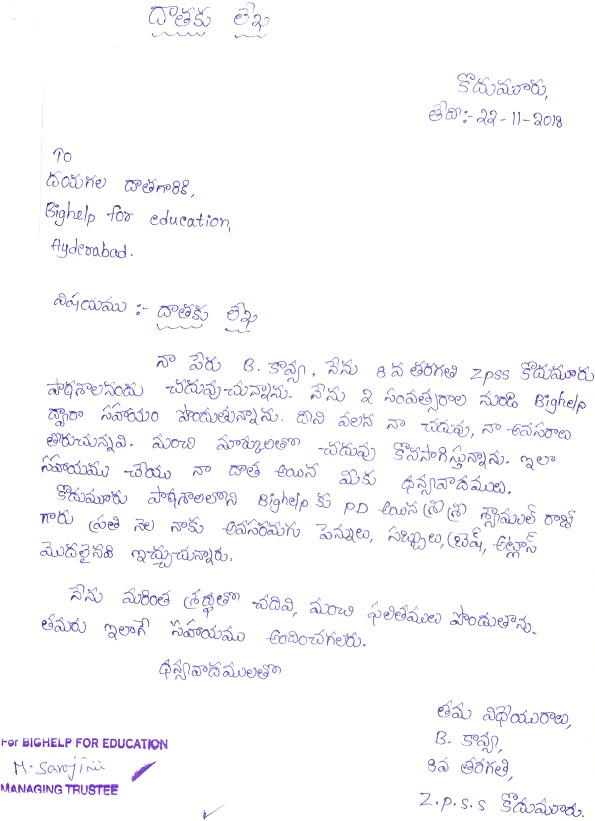 దాతకు లేఖ
కొడుమూరు,
తేది:- 22-11-2018
To
దయగల దాతగారికి,
Bighelp for education,
Hyderabad.
విషయము :- దాతకు లేఖ
నా పేరు B. కావ్య, నేను 8వ తరగతి Zpss కొడుమూరు
పాఠశాలనందు చదువుచున్నాను. నేను 2 సంవత్సరాల నుండి Bighelp
ద్వారా సహాయం పొందుతున్నాను. దీని వలన నా చదువు, నా అవసరాలు
తీరుచున్నవి. మంచి మార్కులతో చదువు కొనసాగిస్తున్నాను. ఇలా
సహాయము చేయు నా దాత అయిన మీకు ధన్యవాదములు.
కొడుమూరు పాఠశాలలోని Bighelp కు PD అయిన శ్రీ శ్రీ శ్యామలత రాజ్
గారు ప్రతి నెల నాకు అవసరమగు పెన్నులు, సబ్బులు, బ్రష్, అట్లాస్
మొదలైనవి ఇచ్చుచున్నారు.
నేను మరింత శ్రద్ధతో చదివి, మంచి ఫలితములు పొందుతాను.
తమరు ఇలాగే సహాయము అందించగలరు.
ధన్యవాదములతో
తమ విధేయురాలు,
B. కావ్య,
8వ తరగతి,
Z.p.s.s కొడుమూరు.
For BIGHELP FOR EDUCATION
M. Sarojini
MANAGING TRUSTEE